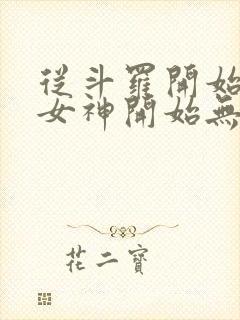 從斗羅開始
女神開始無
花二寶